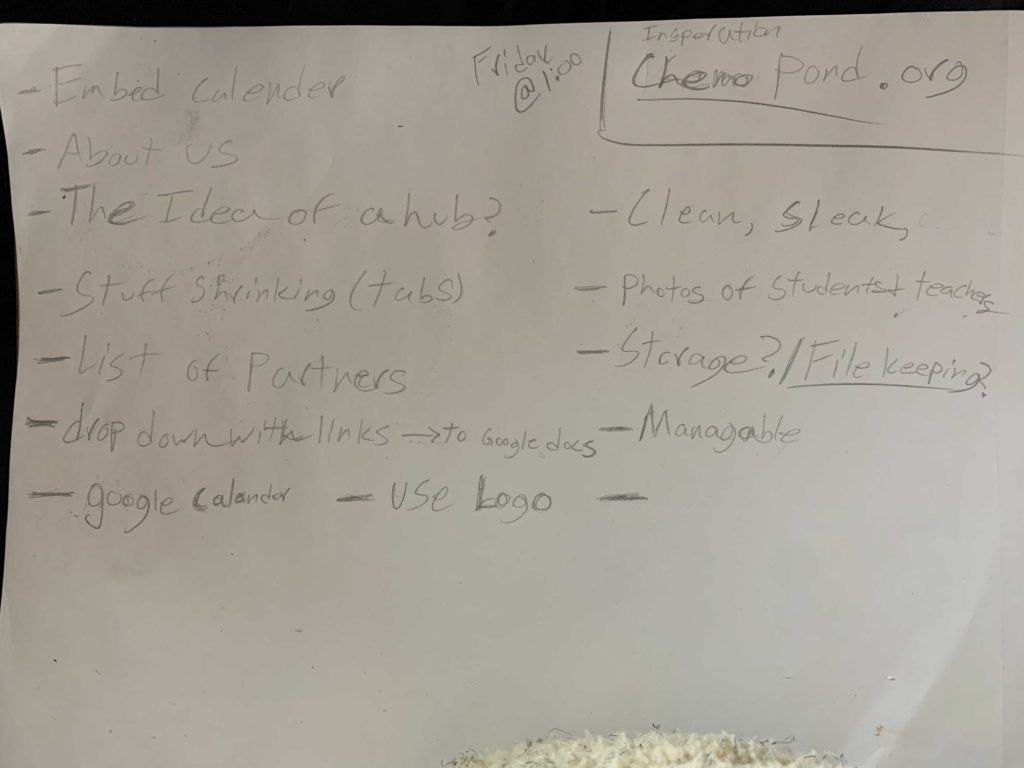 Insparation
Friday
@1:00
Chemo Pond.org
- Embed calender
- About us
- The Idea of a hub?
- Clean, Sleak,
- Stuff Shrinking (tabs)
- Photos of Students + teachers
- List of Partners
- Storage? / File keeping?
- drop down with links → to Google docs
- Managable
- google Calander
- USe Logo
-